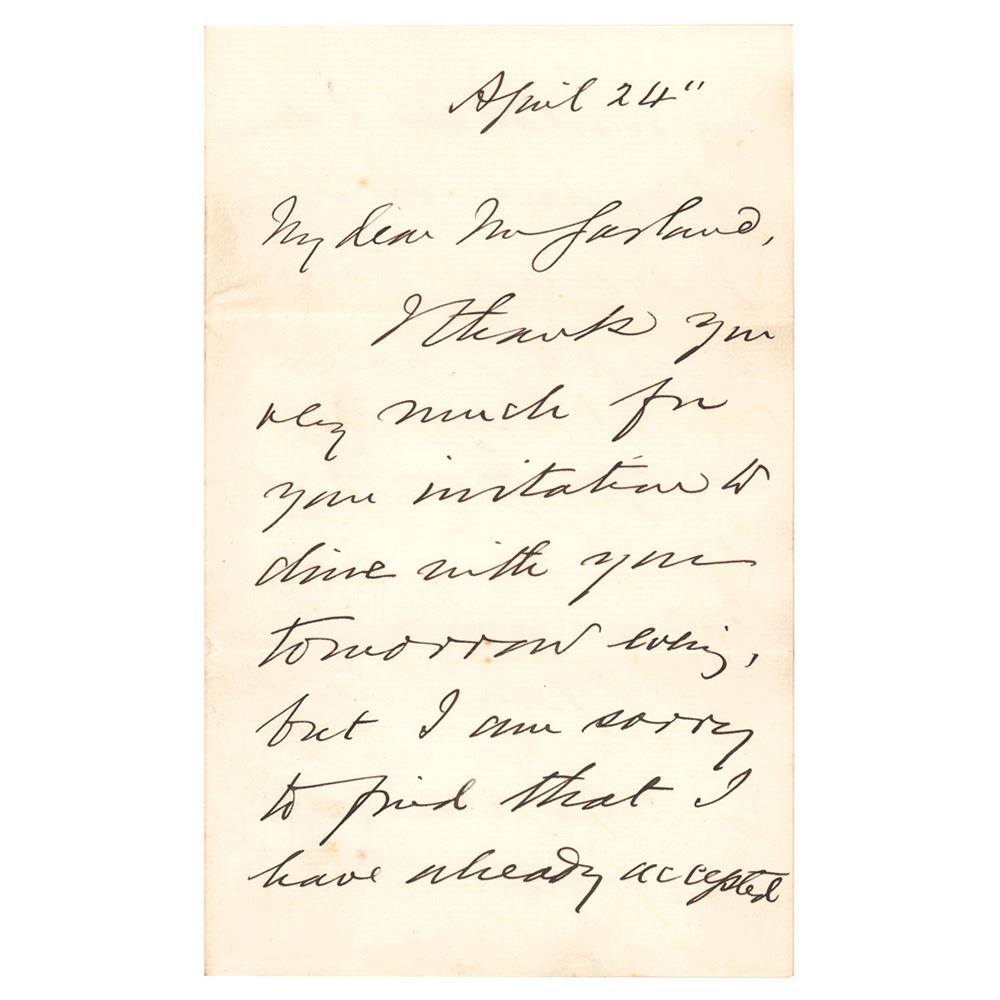 April 24"
My dear McFarland,
I thank you
very much for
your invitation to
dine with you
tomorrow evening,
but I am sorry
to find that I
have already accepted